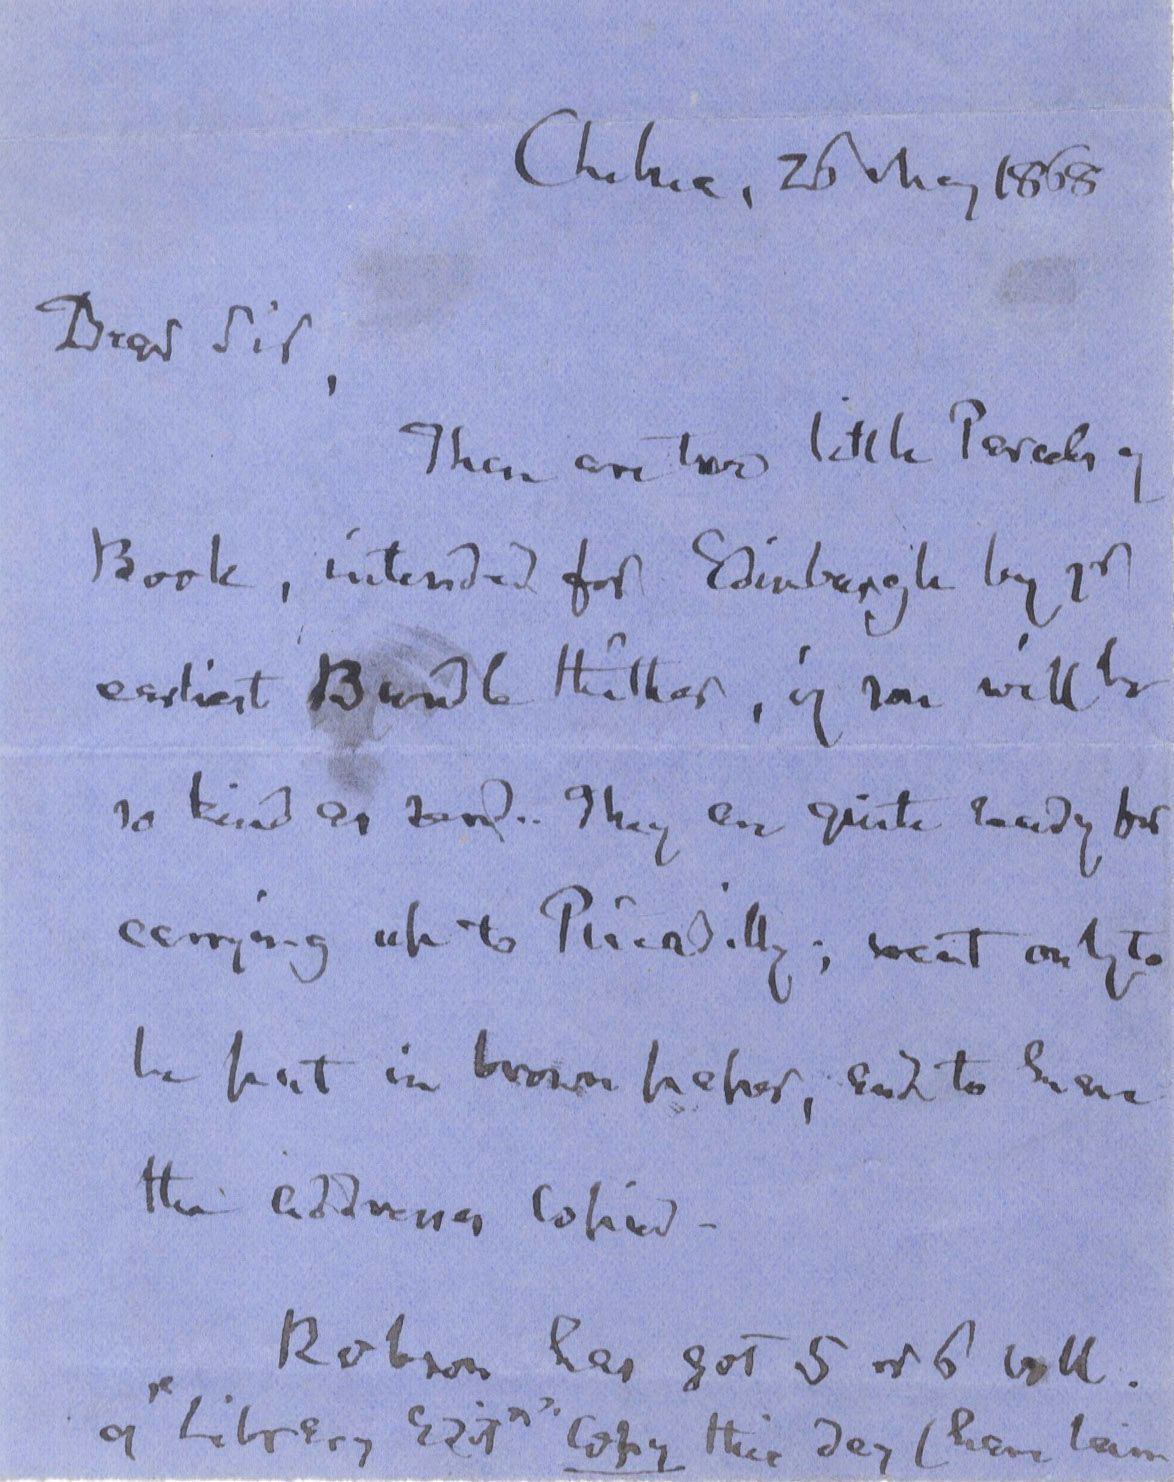 Chelsea, 26 May 1868
Dear Sir,
There are two little Parcels of
Books, intended for Edinburgh by yr
earliest Bundle thither, if you will be
so kind as send. They are quite ready for
carrying up to Piccadilly; want only to
be put in brown paper, and to have
the addresses copied -
Robson has got 5 or 6 voll.
of "Library Editn" Copy this day (have